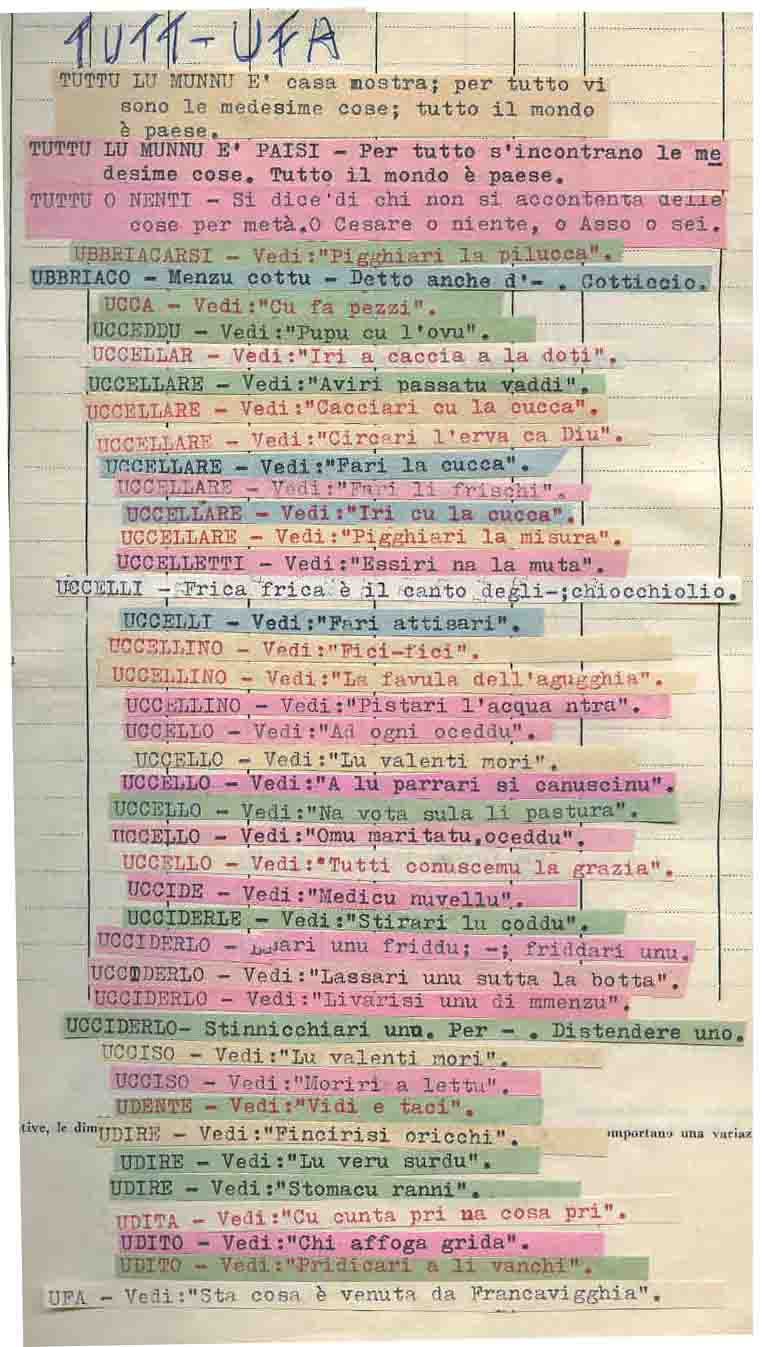 TUTT-UFA
TUTTU LU MUNNU E' casa nostra; per tutto vi
sono le medesime cose; tutto il mondo
è paese.
TUTTU LU MUNNU E' PAISI - Per tutto s'incontrano le me
desime cose. Tutto il mondo è paese.
TUTTU O NENTI - Si dice'di chi non si accontenta delle
cose per metà.O Cesare o niente, o Asso o sei.
UBBRIACARSI - Vedi:"Pigghiari la pilucca".
UBBRIACO - Menzu cottu - Detto anche d'- . Cotticcio.
UCCA - Vedi:"Cu fa pezzi".
UCCEDDU - Vedi:"Pupu cu l'ovu".
UCCELLAR - Vedi:"Iri a caccia a la doti".
UCCELLARE - Vedi:"Aviri passatu vaddi".
UCCELLARE - Vedi:"Cacciari cu la cucca".
UCCELLARE - Vedi:"Circari l'erva ca Diu".
UCCELLARE - Vedi:"Fari la cucca".
UCCELLARE - Vedi:"Fari li frischi".
UCCELLARE - Vedi:"Iri cu la cucca".
UCCELLARE - Vedi:"Pigghiari la misura".
UCCELLETTI - Vedi:"Essiri na la muta".
UCCELLI - Frica frica è il canto degli-;chiocchiolio.
UCCELLI - Vedi:"Fari attisari".
UCCELLINO - Vedi:"Fici-fici".
UCCELLINO - Vedi:"La favula dell'agugghia".
UCCELLINO - Vedi:"Pistari l'acqua ntra".
UCCELLO - Vedi:"Ad ogni oceddu".
UCCELLO - Vedi:"Lu valenti mori".
UCCELLO - Vedi:"A lu parrari si canuscinu".
UCCELLO - Vedi:"Na vota sula li pastura".
UCCELLO - Vedi:"Omu maritatu,oceddu".
UCCELLO - Vedi:"Tutti conuscemu la grazia".
UCCIDE - Vedi:"Medicu nuvellu".
UCCIDERLE - Vedi:"Stirari lu coddu".
UCCIDERLO - unu friddu; -; friddari unu.
UCCIDERLO - Vedi:"Lassari unu sutta la botta".
UCCIDERLO - Vedi:"Livarisi unu di mmenzu".
UCCIDERLO- Stinnicchiari unu. Per - . Distendere uno.
UCCISO - Vedi:"Lu valenti mori".
UCCISO - Vedi:"Moriri a lettu".
UDENTE - Vedi:"Vidi e taci".
tive, le dim UDIRE - Vedi:"Fincirisi oricchi". mportano una variaz
UDIRE - Vedi:"Lu veru surdu".
UDIRE - Vedi:"Stomacu ranni".
UDITA - Vedi:"Cu cunta pri na cosa pri".
UDITO - Vedi:"Chi affoga grida".
UDITO - Vedi:"Pridicari a li vanchi".
UFA - Vedi:"Sta cosa è venuta da Francavigghia".